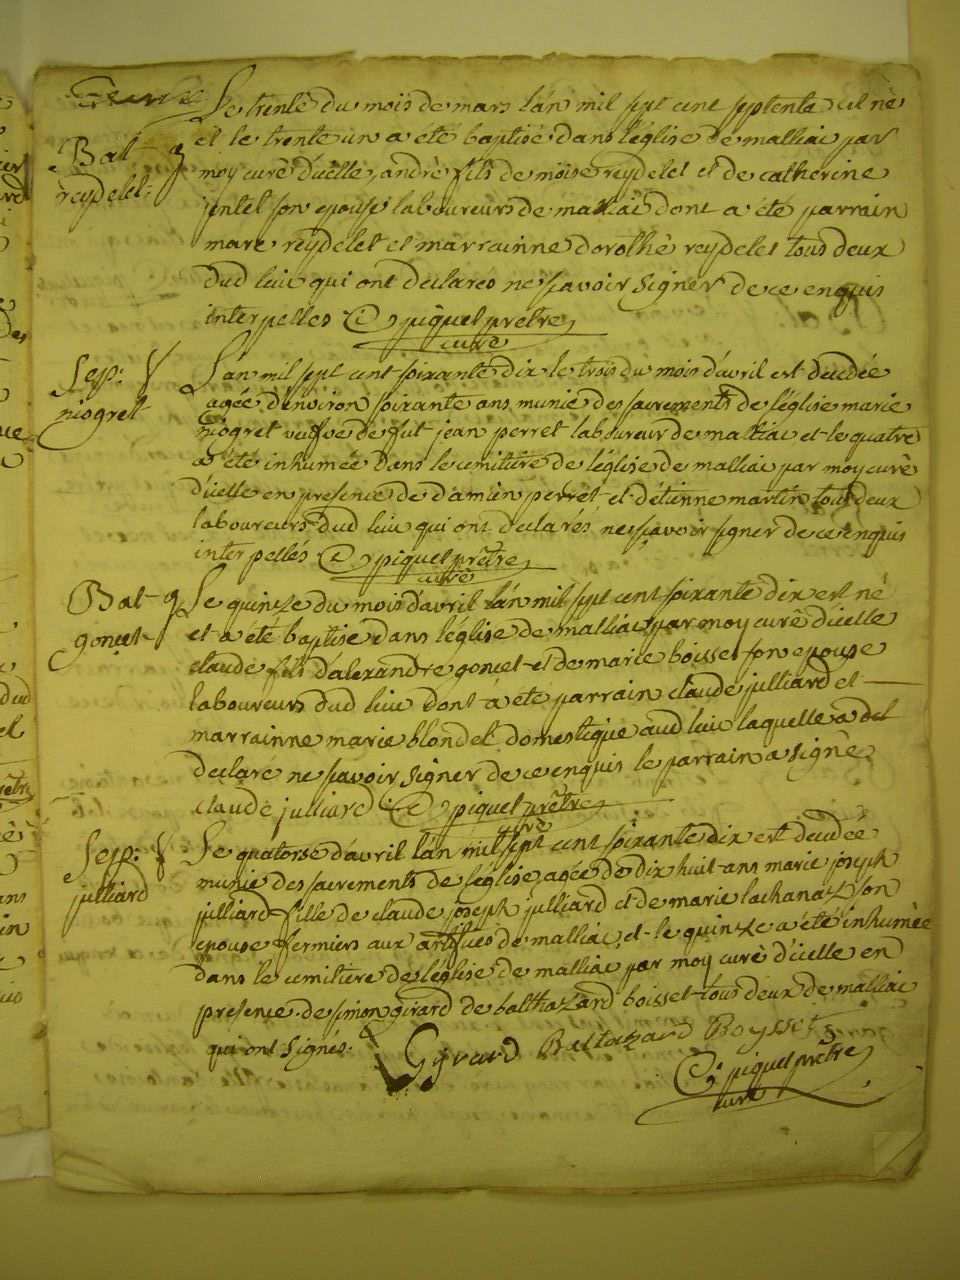 Le trente du mois de mars lan mil sept cent septente est né
et le trente un a été baptisé dans léglise de malliac par
moy curé d'icelle, andré fils de moise reydelet et de catherine
jentel son epouse laboureurs de malliac dont a été parrain
marc reydelet et marrainne dorothé reydelet tous deux
dud lieu qui ont declarés ne sçavoir signer de ce enquis
interpellés C piquet prêtre
curé
Bat-
reydelet
L'an mil sept cent soixante dix le trois du mois d'avril est decedée
agée d'environ soixante ans munie des sacrements de l'église marie
niogret veufve de fut jean perret laboureur de malliac et le quatre
a été inhumée dans le cemitière de l'église de malliac par moy curé
d'icelle en presence de d'amien perret et d'étienne martin tous deux
laboureurs dud lieu qui ont declarés ne sçavoir signer de ce enquis
interpellés C piquet prêtre
curé
Sep:
niogret
Le quinze du mois d'avril l'an mil sept cent soixante dix est né
et a été baptisé dans l'église de malliac par moy curé d'icelle
claude fils d'alexandre goncet et de marie boisset son epouse
laboureurs dud lieu dont a été parrain claude julliard et
marrainne marie blondet domestique aud lieu laquelle a
declaré ne sçavoir signer de ce enquis le parrain a signé
claude julliard C piquet prêtre
curé
Bat-
goncet
Le quatorse d'avril l'an mil sept cent soixante dix est decedée
munie des sacrements de l'église agée de dix huit ans marie joseph
julliard fille de claude joseph julliard et de marie lachanaz son
epouse fermiers aux de malliac, et le quinze a été inhumée
dans le cemitière de l'église de malliac par moy curé d'icelle en
presence de simon girard de balthazard boisset tous deux de malliac
qui ont signés.
Sep:
julliard
S Girard Baltazard Boysset
C piquet prêtre
curé